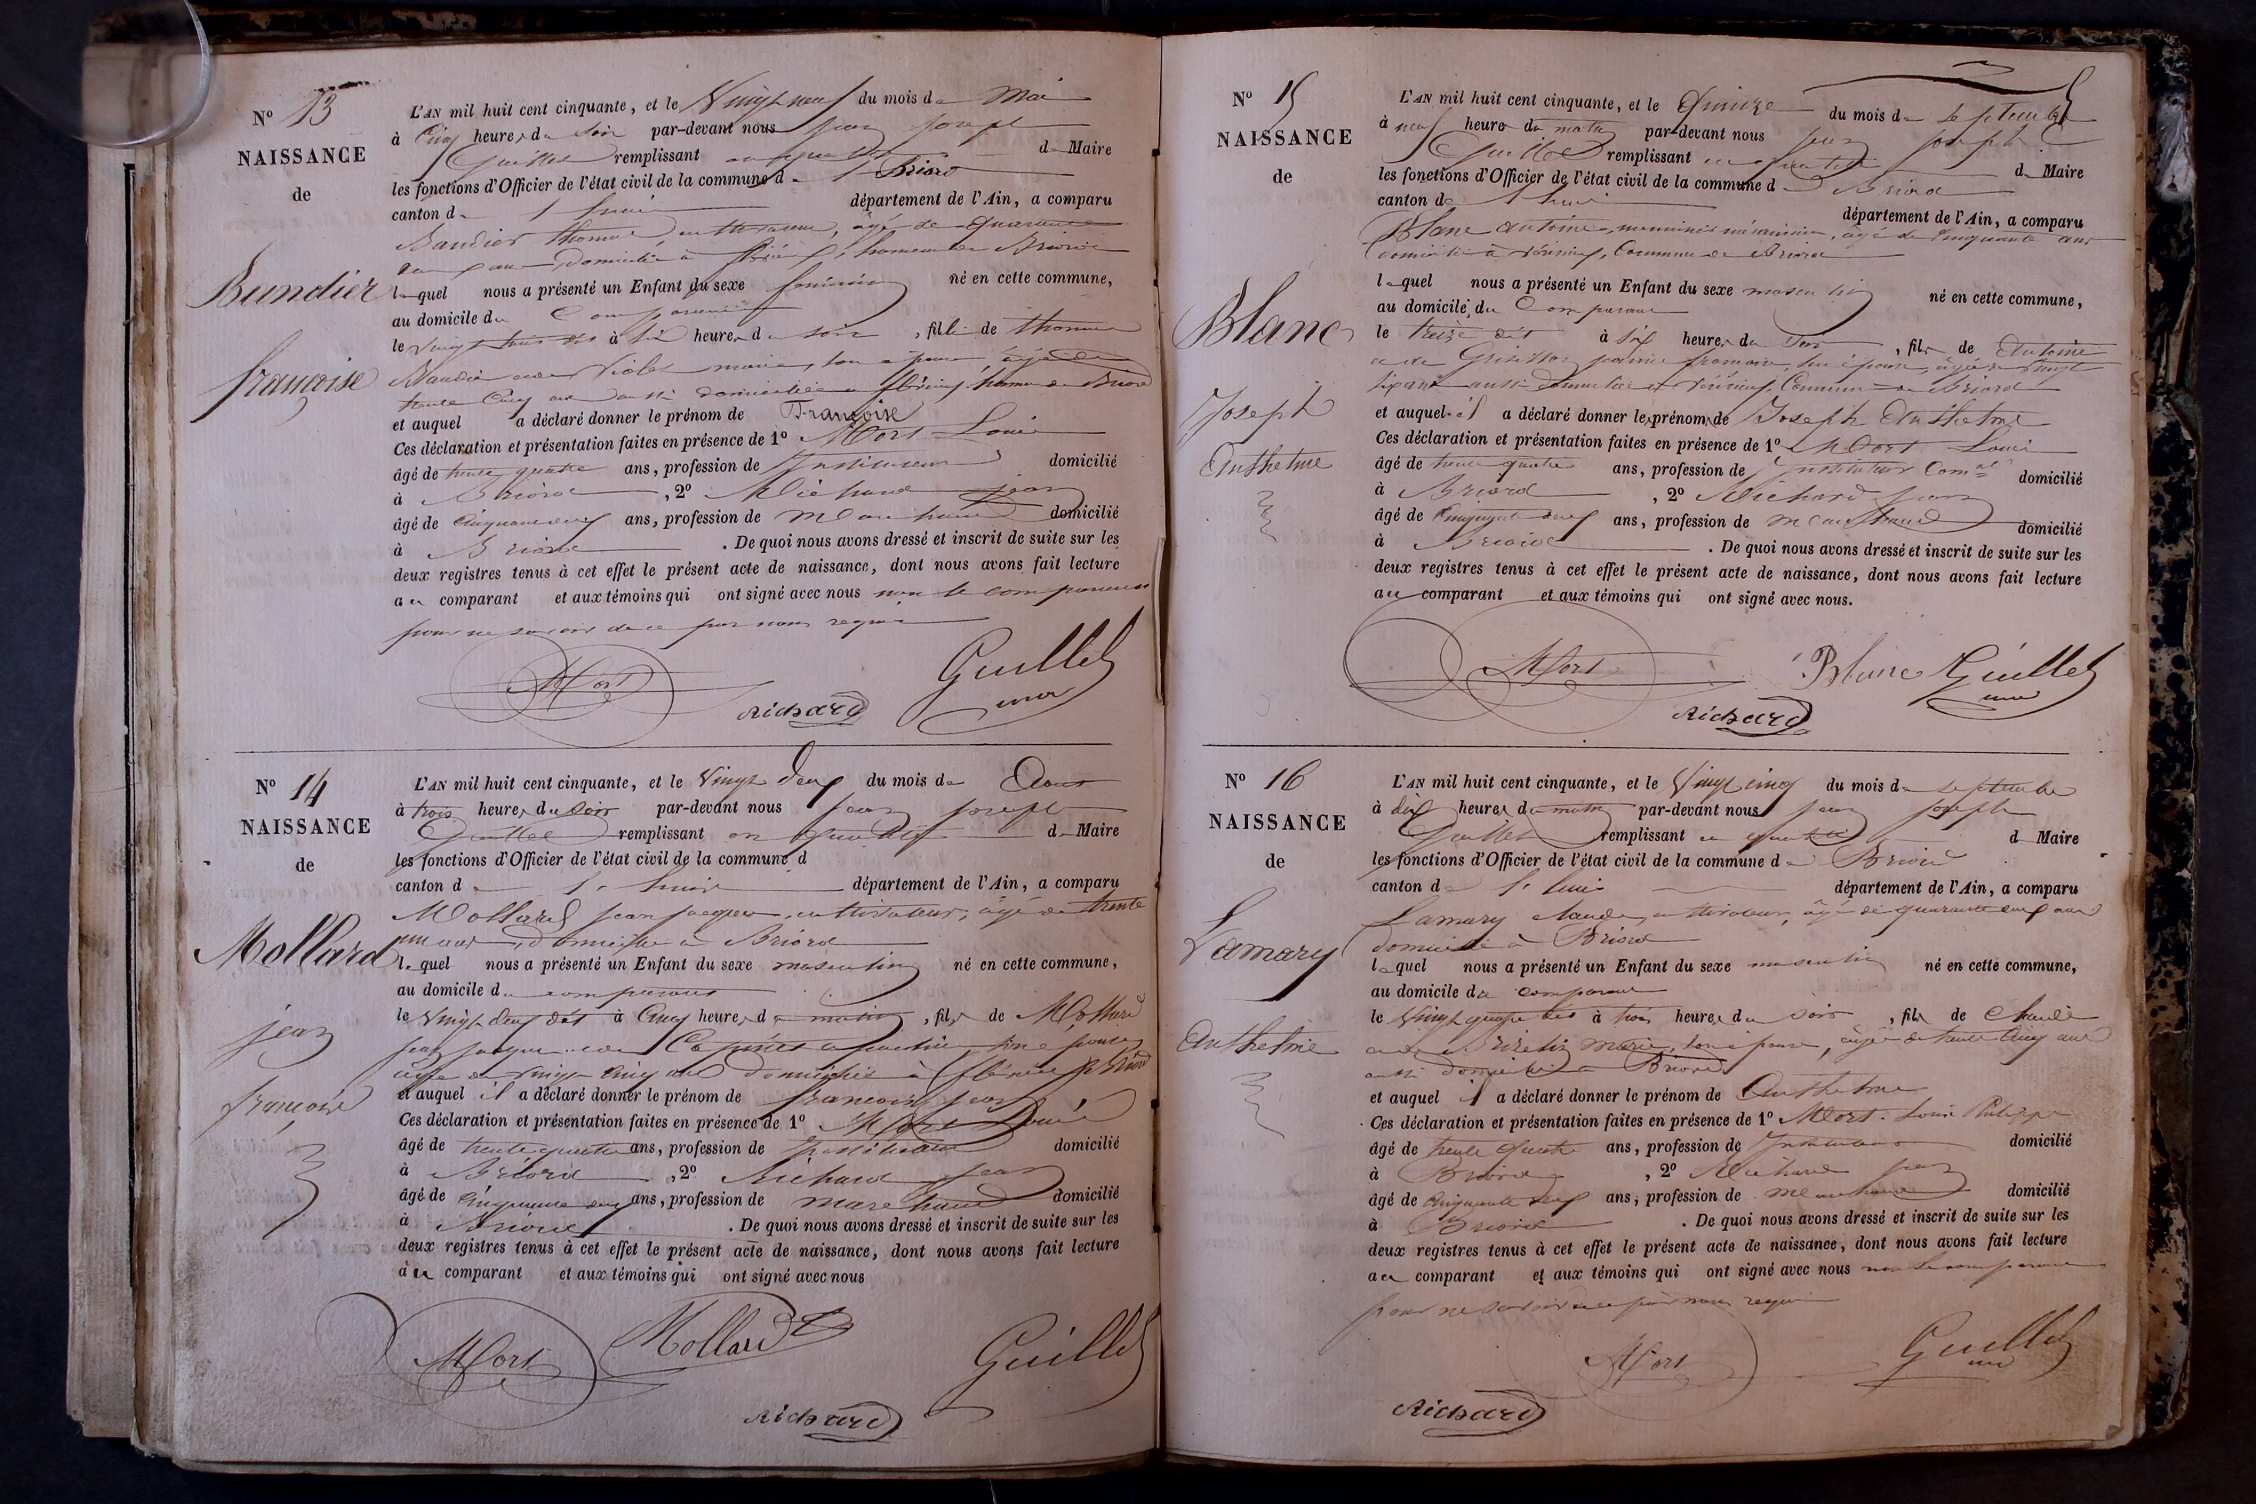 N.º 13
NAISSANCE
de
Bundier
françoise
L'AN mil huit cent cinquante, et le Vingt neuf du mois de Mai
à Cinq heures du Soir par-devant nous jean joseph
Guillet remplissant en qualité de Maire
les fonctions d'Officier de l'état civil de la commune d Briord
canton de Lhuis département de l'Ain, a comparu
thomas, cultivateur, âgé de Quarante
ans, domicilié à commune de Briord
lequel nous a présenté un Enfant du sexe féminin né en cette commune,
au domicile du Comparant
le vingt huit dit à six heures du soir, fille de thomas
et de Violet marie, son épouse âgée de
trente Cinq ans aussi domiciliée à de Briord
et auquel a déclaré donner le prénom de Françoise
Ces déclaration et présentation faites en présence de 1º Mort Louis
âgé de trente quatre ans, profession de Instituteur domicilié
à Briord, 2º Richard jean
âgé de Cinquante deux ans, profession de Marechand domicilié
à Briord. De quoi nous avons dressé et inscrit de suite sur les
deux registres tenus à cet effet le présent acte de naissance, dont nous avons fait lecture
au comparant et aux témoins qui ont signé avec nous non le comparant
pour ne savoir de ce par nous requis
Mort
Richard
Guillet
N.º 14
NAISSANCE
de
Mollard
jean
françois
L'AN mil huit cent cinquante, et le Vingt deux du mois de Aout
à trois heures du Soir par-devant nous jean joseph
Guillet remplissant en qualité de Maire
les fonctions d'Officier de l'état civil de la commune d
canton d Lhuis département de l'Ain, a comparu
Mollard jean jacques, cultivateur, âgé de trente
un ans, domicilié à Briord
lequel nous a présenté un Enfant du sexe masculin né en cette commune,
au domicile du comparant
le Vingt deux dit à Cinq heures du matin, fils de Mollard
jean jacques et de son épouse
âgée de vingt Cinq ans domiciliés à Briord
et auquel il a déclaré donner le prénom de françois jean
Ces déclaration et présentation faites en présence de 1º Mort Louis
âgé de trente quatre ans, profession de Instituteur domicilié
à Briord, 2º Richard jean
âgé de Cinquante deux ans, profession de Marechand domicilié
à Briord. De quoi nous avons dressé et inscrit de suite sur les
deux registres tenus à cet effet le présent acte de naissance, dont nous avons fait lecture
au comparant et aux témoins qui ont signé avec nous
Mort
Mollard
Guillet
Richard
N.º 15
NAISSANCE
de
Blanc
Joseph
Anthelme
L'AN mil huit cent cinquante, et le Quinze du mois de Septembre
à neuf heure du matin par-devant nous jean joseph
Guillet remplissant en qualité de Maire
les fonctions d'Officier de l'état civil de la commune d Briord
canton de Lhuis département de l'Ain, a comparu
Blanc Antoine, âgé de Cinquante ans
domicilié à Vérisieu, Commune de Briord
lequel nous a présenté un Enfant du sexe masculin né en cette commune,
au domicile du Comparant
le treize dit à Six heures du Soir, fils de Antoine
et de son épouse, âgée de Vingt
six ans aussi domiciliée à Vérisieu, Commune de Briord
et auquel il a déclaré donner les prénoms de Joseph Anthelme
Ces déclaration et présentation faites en présence de 1º Mort Louis
âgé de trente quatre ans, profession de Instituteur Comal domicilié
à Briord, 2º Richard jean
âgé de Cinquante deux ans, profession de Marechand domicilié
à Briord. De quoi nous avons dressé et inscrit de suite sur les
deux registres tenus à cet effet le présent acte de naissance, dont nous avons fait lecture
au comparant et aux témoins qui ont signé avec nous.
Mort
Blanc
Guillet
Richard
N.º 16
NAISSANCE
de
Lamary
Anthelme
L'AN mil huit cent cinquante, et le Vingt cinq du mois de septembre
à dix heures du matin par-devant nous jean joseph
Guillet remplissant en qualité d Maire
les fonctions d'Officier de l'état civil de la commune d Briord
canton d Lhuis département de l'Ain, a comparu
Lamary claude, cultivateur, âgé de quarante cinq ans
domicilié à Briord
lequel nous a présenté un Enfant du sexe masculin né en cette commune,
au domicile du comparant
le Vingt quatre dit à trois heures du soir, fils de Claude
et de marie, son épouse, âgée de trente Cinq ans
aussi domiciliée à Briord
et auquel il a déclaré donner le prénom de Anthelme
Ces déclaration et présentation faites en présence de 1º Mort Louis Philippe
âgé de trente quatre ans, profession de Instituteur domicilié
à Briord, 2º Richard jean
âgé de Cinquante deux ans, profession de Marechand domicilié
à Briord. De quoi nous avons dressé et inscrit de suite sur les
deux registres tenus à cet effet le présent acte de naissance, dont nous avons fait lecture
au comparant et aux témoins qui ont signé avec nous non le comparant
pour ne savoir de ce par nous requis
Mort
Guillet
Richard